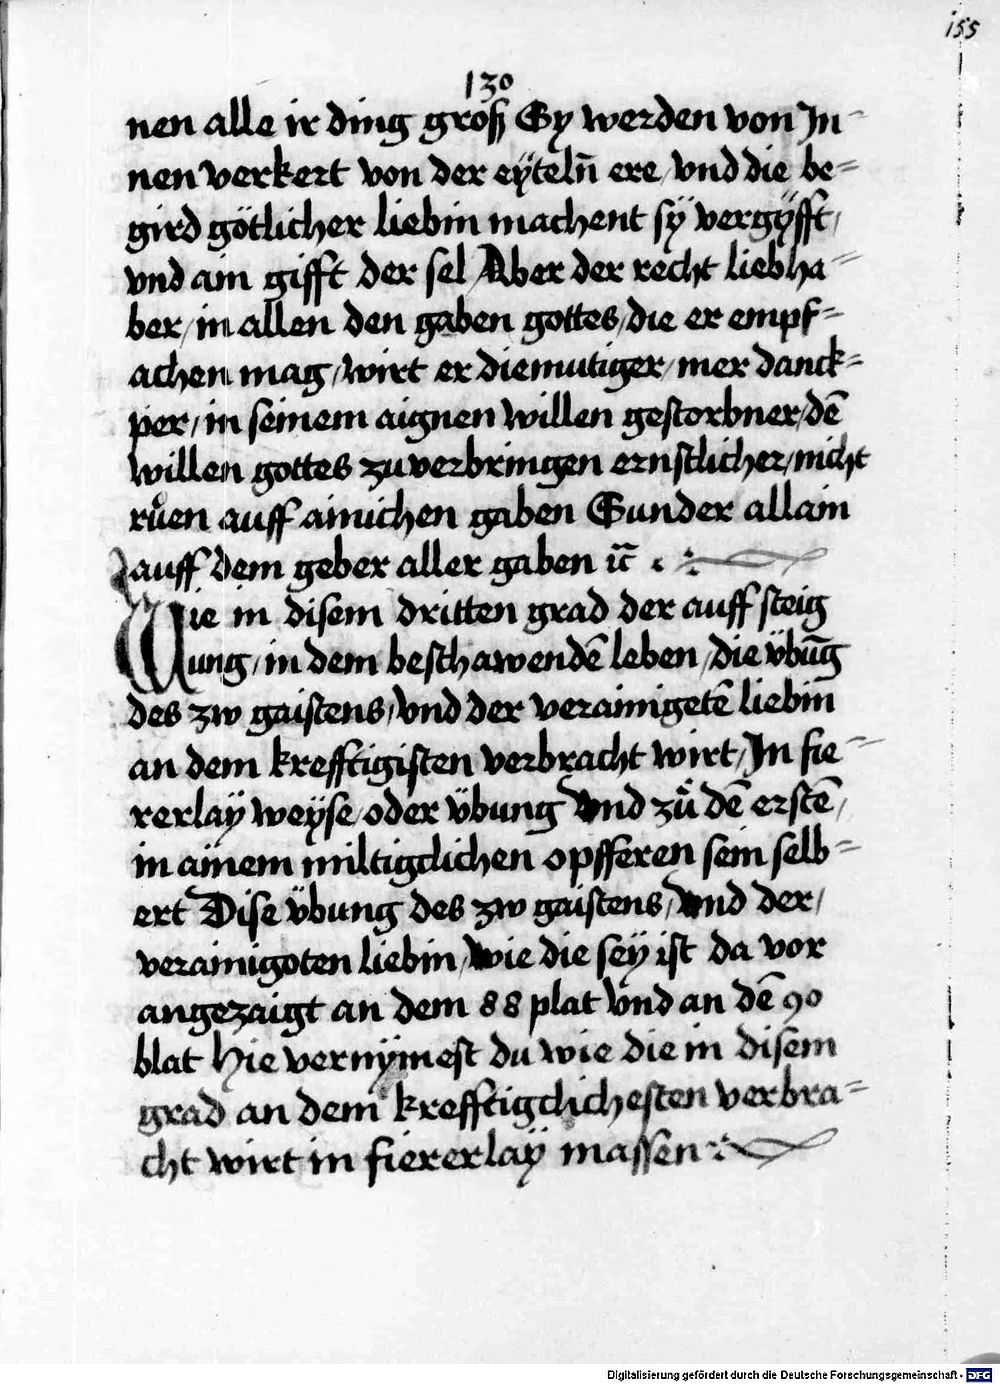 155
130
nen alle ir ding groß Sy werden von In⸗
nen verkert von der eÿteln̄ ere / vnd die be⸗
gird götlicher liebin machent sÿ vergÿfft /
vnd ain gifft der sel Aber der recht liebha⸗
ber / in allen den gaben gottes / die er empf⸗
achen mag / wirt er diemutiger / mer danck⸗
per / in seinem aignen willen gestorbner / dē
willen gottes zuverbringen ernstlicher / nicht
růen auff ainichen gaben Sunder allain
auff dem geber aller gaben
Wie in disem dritten grad der auff steig
ung / in dem beschawendē leben / die v̈būg
des zw gaistens / vnd der verainigetē liebin
an dem krefftigisten verbracht wirt / In fie⸗
rerlaÿ weÿse / oder v̈bung vnd zů dē erstē /
in ainem miltigclichen opfferen sein selb⸗
ert Dise v̈bung des zw gaistens / vnd der /
verainigoten liebin / wie die seÿ ist da vor
angezaigt an dem 88 plat vnd an dē 90
blat Hie vernÿmest du wie die in disem
grad an dem krefftigclichesten verbra⸗
cht wirt in fiererlaÿ massen
Digitalisierung gefördert durch die Deutsche Forschungsgemeinschaft - DFG